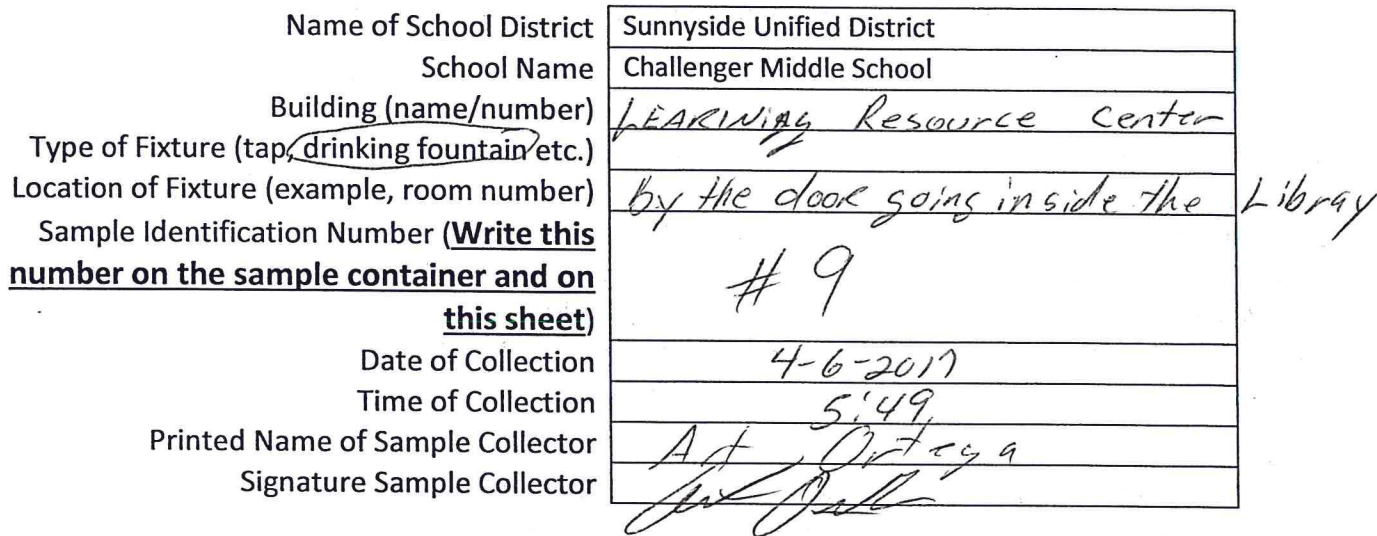 Name of School District Sunnyside Unified District
School Name Challenger Middle School
Building (name/number) LEARNINg Resource Center
Type of Fixture (tap, drinking fountain etc.)
Location of Fixture (example, room number) by the door going inside the Libray
Sample Identification Number (Write this
number on the sample container and on
this sheet)
# 9
Date of Collection 4-6-2017
Time of Collection 5:49
Printed Name of Sample Collector Art Ortega
Signature Sample Collector